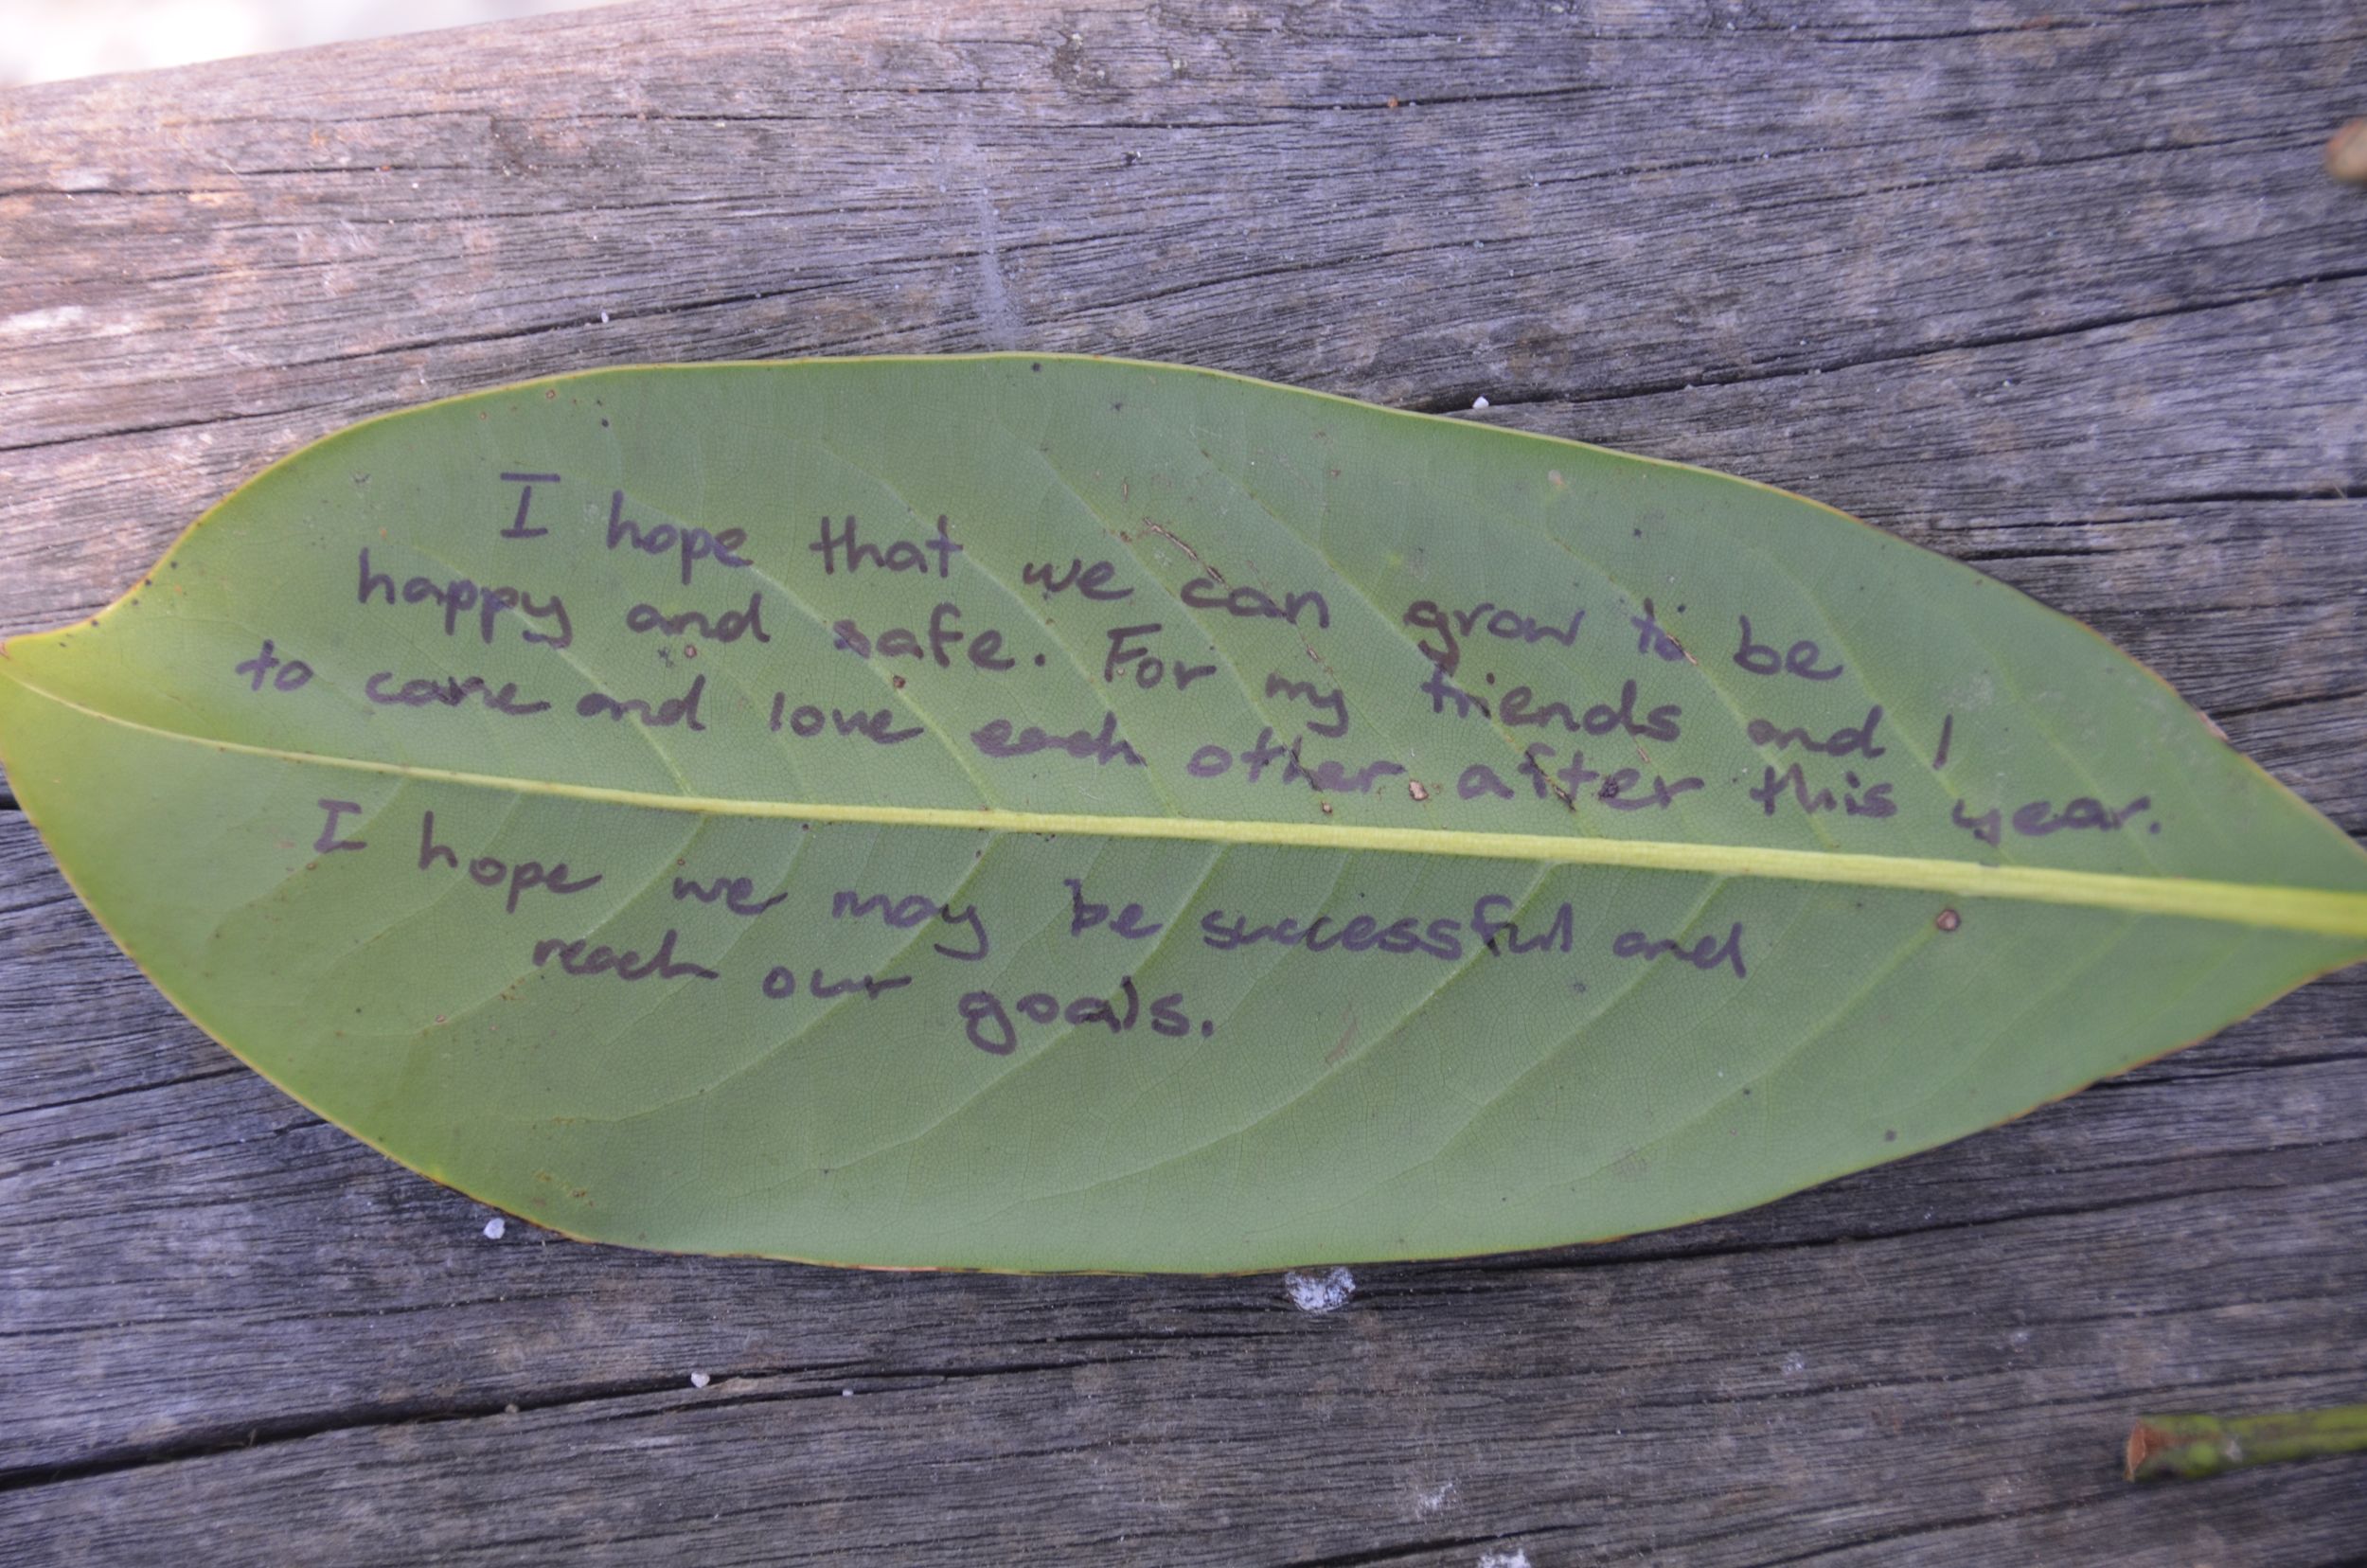 I hope that we can grow to be
happy and safe. For my friends and I
to care and love each other after this year.
I hope we may be successful and
reach our goals.